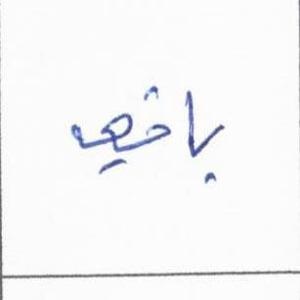 باقيه